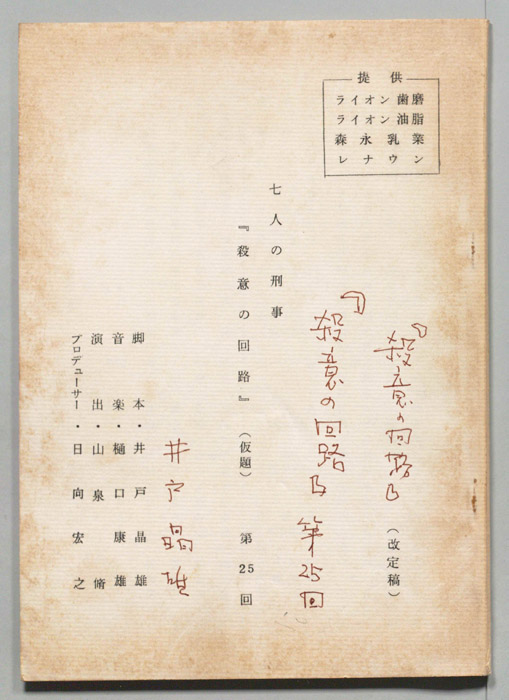 提供
ライオン歯磨
ライオン油脂
森永乳業
レナウン
『殺意の回路』
(改定稿)
『殺意の回路』 第25回
七人の刑事
『殺意の回路』(仮題) 第25回
井戸晶雄
脚本・井戸晶雄
音楽・樋口康雄
演出・山泉脩
プロデューサー・日向宏之